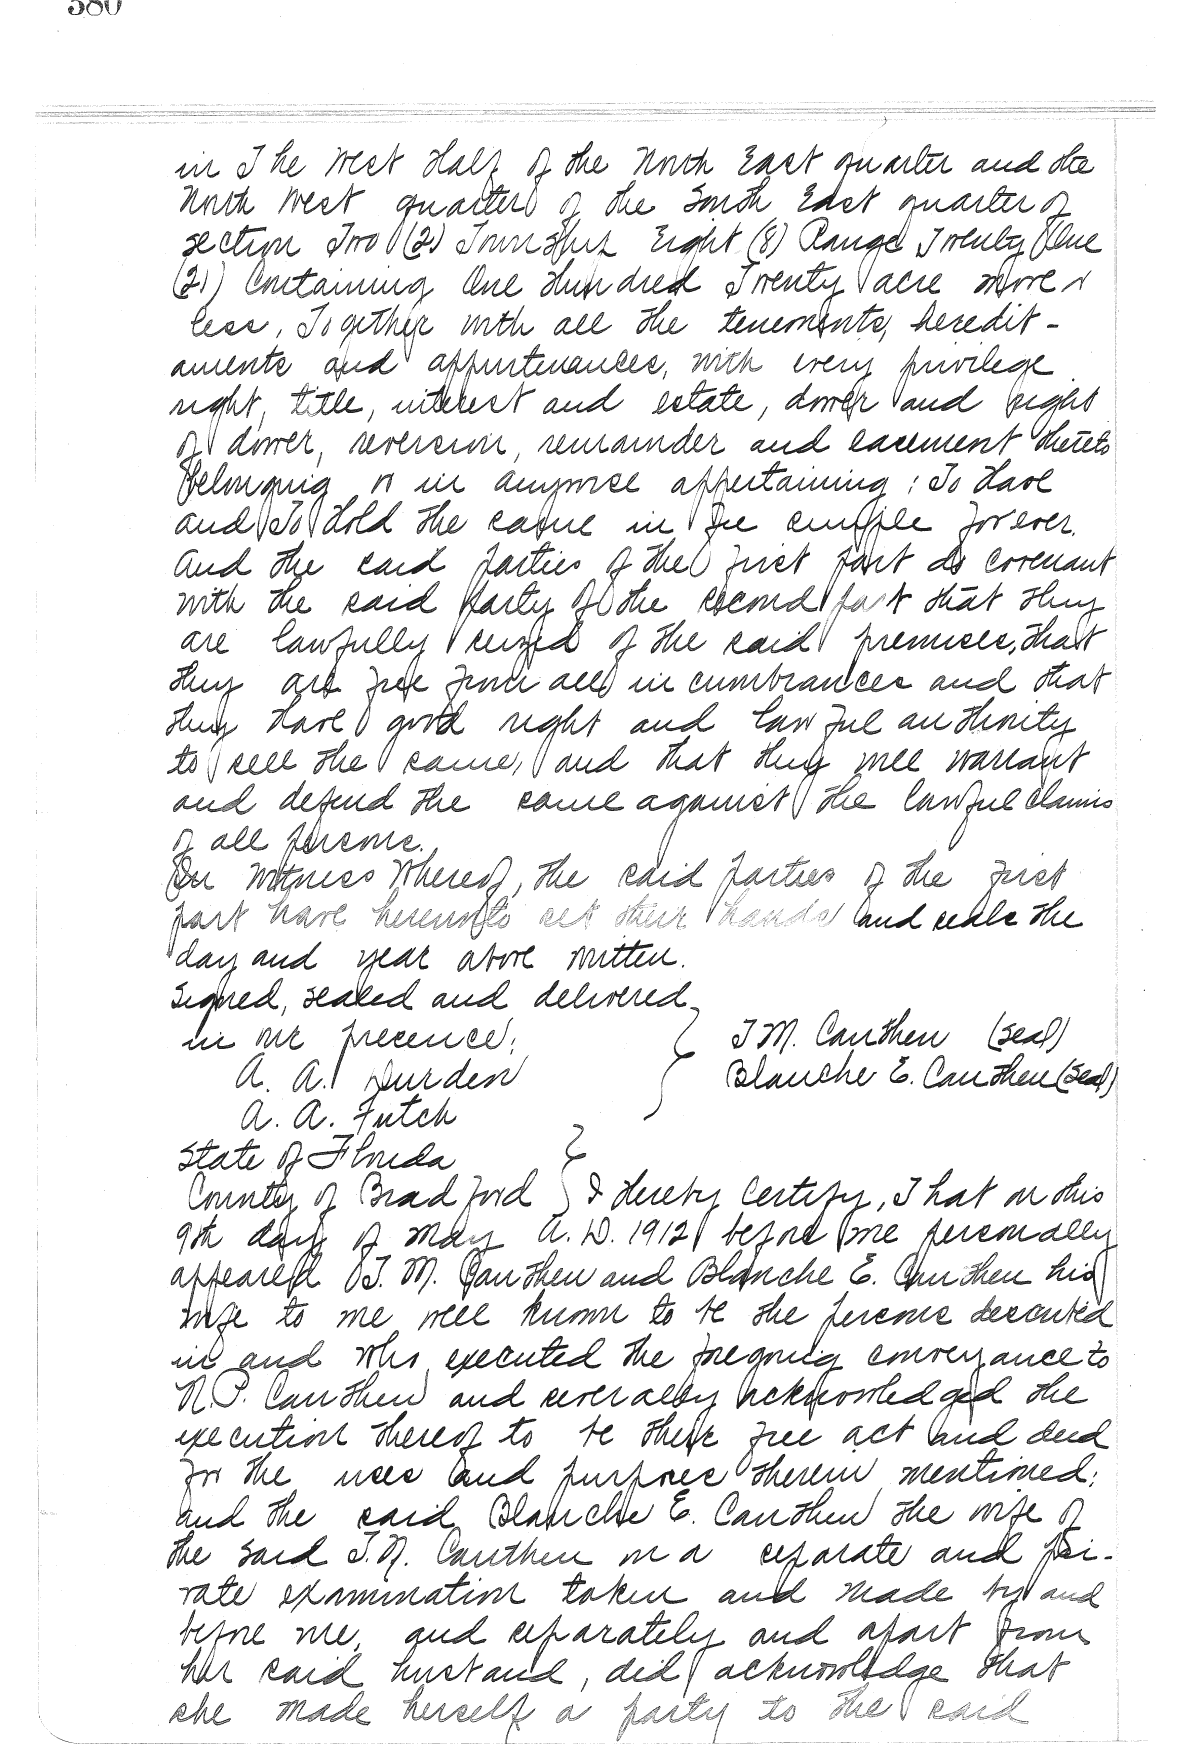 380
in The West Half of the North East quarter and the
North West quarter of the South East quarter of
section Two (2) Township Eight (8) Range Twenty One
(21) Containing One Hundred Twenty acre more or
less, Together with all the tenements, heredit-
aments and appurtenances, with every privilege
right, title, interest and estate, dower and right
of dower, reversion, remainder and easement thereto
belonging or in anywise appertaining: To Have
and To Hold the same in fee simple forever.
And the said parties of the first part do covenant
with the said party of the second part that they
are lawfully seized of the said premises, that
they are free from all incumbrances and that
they have good right and lawful authority
to sell the same, and that they will warrant
and defend the same against the lawful claims
of all persons.
In Witness Whereof, the said parties of the first
part have hereunto set their hands and seals the
day and year above written.
Signed, sealed and delivered
in our presence: T M. Cauthen (Seal)
A. A. Durden Blanche E. Cauthen (Seal)
A. A. Futch
State of Florida
County of Bradford I Hereby Certify, That on this
9th day of May A. D. 1912 before me personally
appeared T. M. Cauthen and Blanche E. Cauthen his
wife to me well known to be the persons described
in and who executed the foregoing conveyance to
N. P. Cauthen and severally acknowledged the
execution thereof to be their free act and deed
for the uses and purposes therein mentioned;
and the said Blanche E. Cauthen the wife of
the said T. N. Cauthen on a separate and pri-
vate examination taken and made by and
before me, and separately and apart from
her said husband, did acknowledge that
she made herself a party to the said